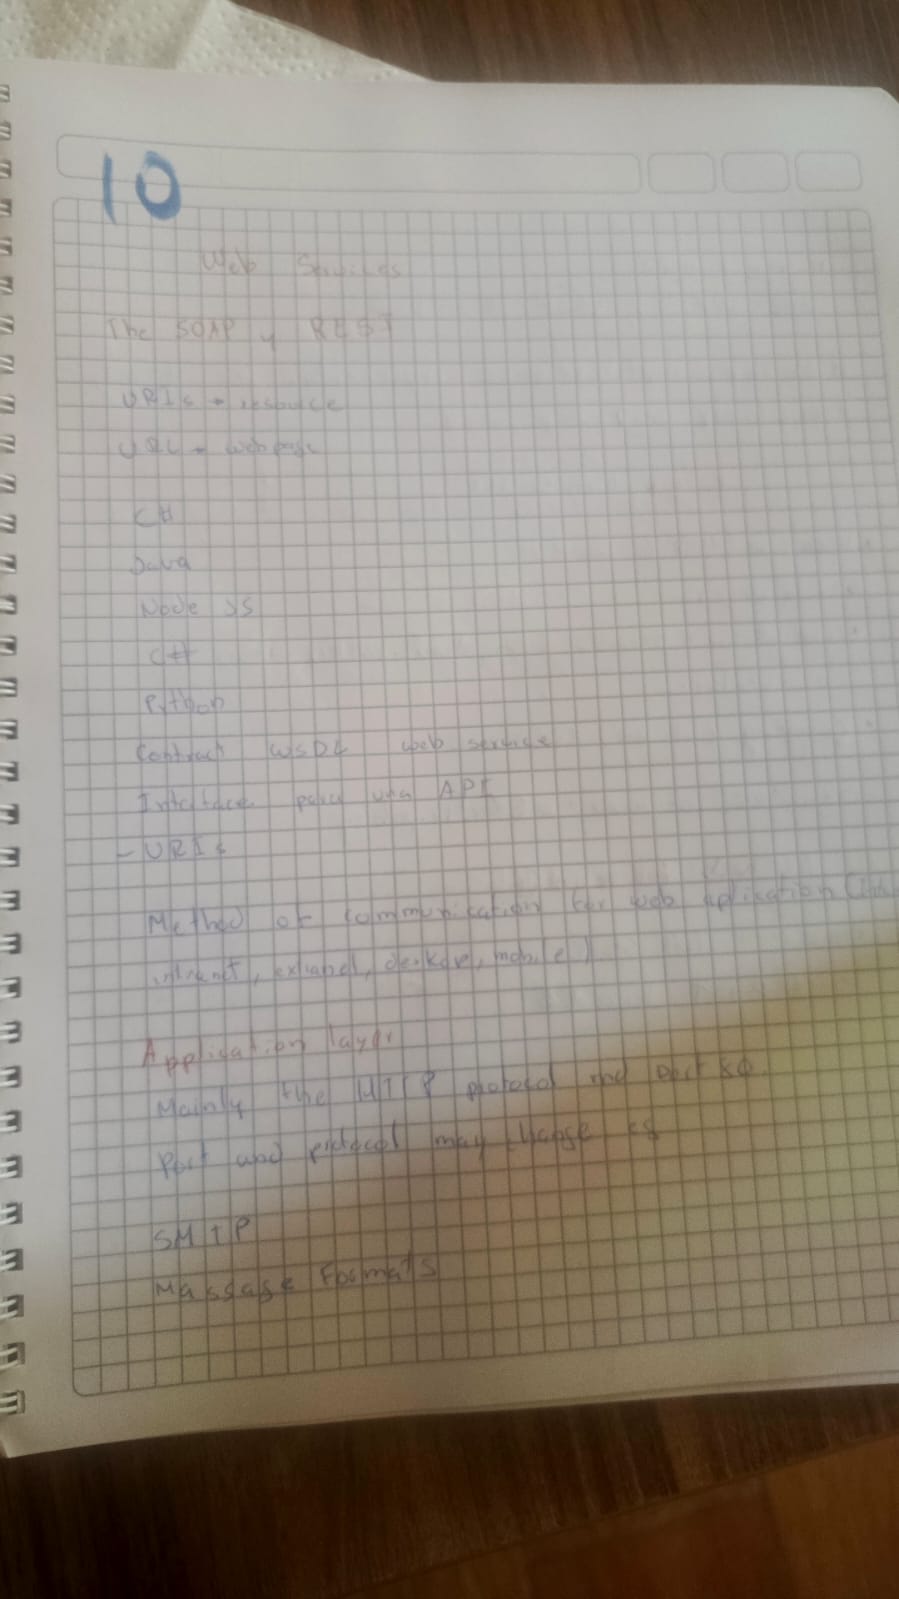 10
Web Services
The SOAP y REST
URIs → resource
URL → web page
C#
Java
Node JS
C++
Python
Contract WSDL web service
Interface para una API
- URIs
Method of communication for web aplication
intranet, extranet, mobile)
Application layer
Mainly the HTTP protocol and port 80.
Port and protocol may change
SMTP
Massage Formats